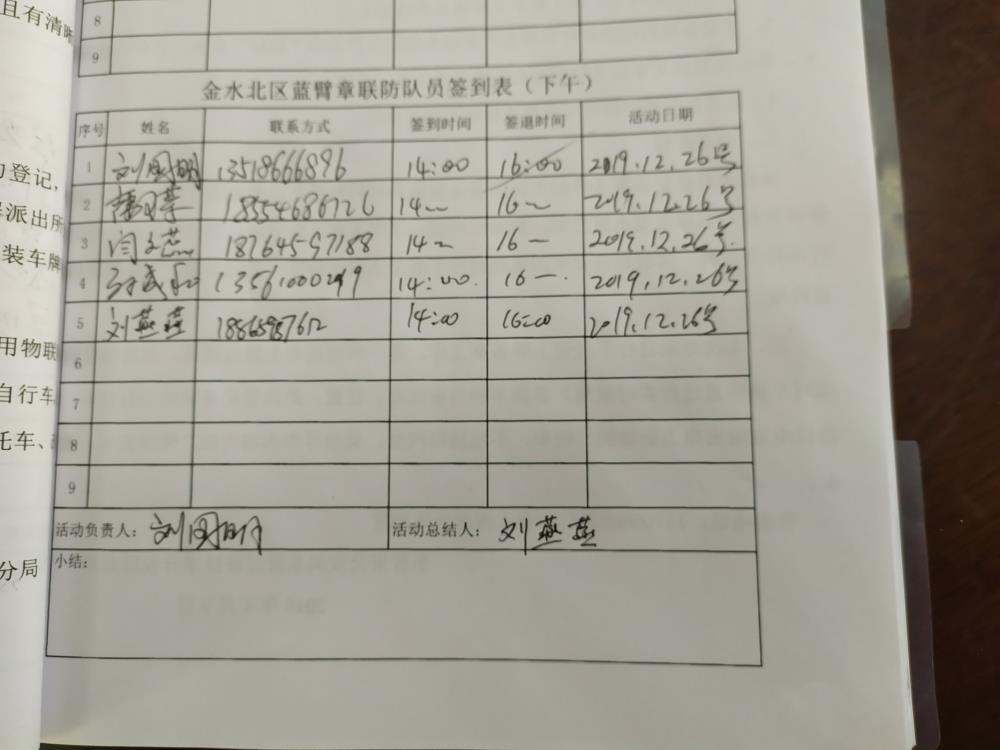 且有清晰
登记,
派出所
装车牌
用物联
自行车
托车、
分局
8
9
金水北区蓝臂章联防队员签到表（下午）
序号 姓名 联系方式 签到时间 签退时间 活动日期
1 刘国明 13518666896 14:00 16:00 2019.12.26号
2 18554686726 14~ 16~ 2019.12.26号
3 闫文燕 18764597188 14~ 16— 2019.12.26号.
4 14:00. 16—. 2019.12.26号
5 刘燕燕 14:00 16:00 2019.12.26号
6
7
8
9
活动负责人: 刘国明 活动总结人: 刘燕燕
小结: